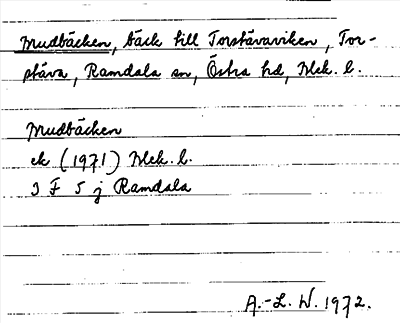 Mudbäcken, bäck till Torstävaviken, Tor-
stäva, Ramdala sn, Östra hd, Blek. l.
Mudbäcken
ek (1971) Blek. l.
3 F 5 j Ramdala
A.-L. W. 1972.